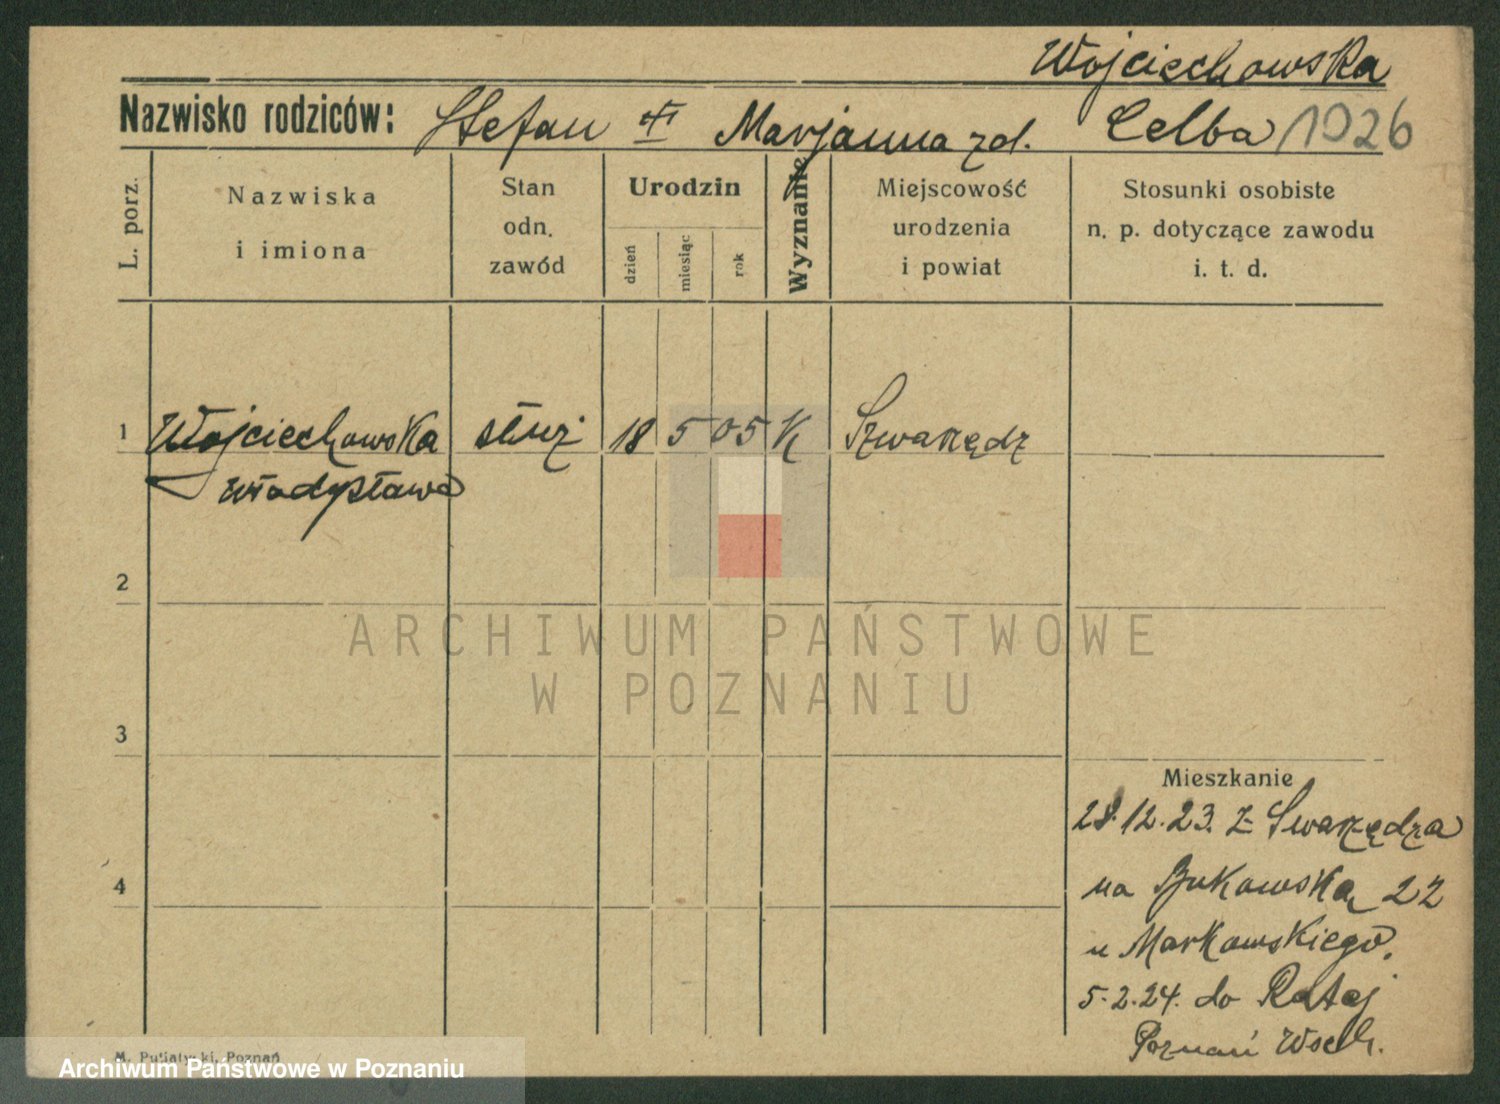 Wojciechowska
Nazwisko rodziców: Stefan i Marjanna zd. Celba 1026
L. porz.
Nazwiska
i imiona
Stan
odn.
zawód
Urodzin
dzień
miesiąc
rok
Wyznanie
Miejscowość
urodzenia
i powiat
Stosunki osobiste
n. p. dotyczące zawodu
i. t. d.
1 Wojciechowska służ 18 5 05 K Szwarzędz
Władysława
2
ARCHIWUM PAŃSTWOWE
W POZNANIU
3
Mieszkanie
28.12.23. z Swarzędza
4
na Bukowską 22
u Markowskiego.
5.2.24. do Rataj
Poznań Wsch.
M. Putiatycki, Poznań
Archiwum Państwowe w Poznaniu